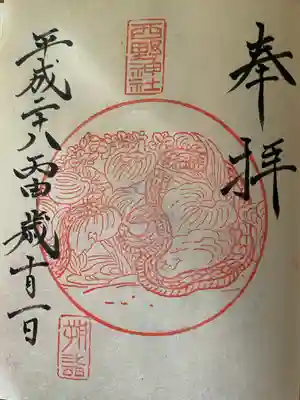 奉拝
西野神社
平成二十八丙申歳十月一日